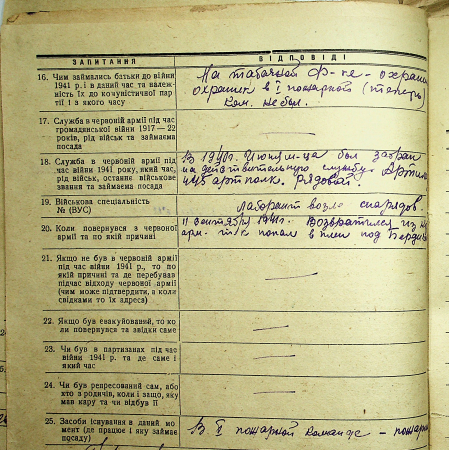 ЗАПИТАННЯ
ВІДПОВІДІ
16. Чим займались батьки до війни
1941 р. і в даний час та належність їх до комуністичної партії і з якого часу
На табачной ф-ке - охранн
охранник в I пожарной (теперь)
Ком. не был.
17. Служба в червоній армії під час
громадянської війни 1917—22
років, рід військ та займаєма
посада
18. Служба в червоній армії під
час війни 1941 року, який час,
рід військ, останнє військове
звання та займаєма посада
В 1940г. Июня м-ца был забран
на действительную службу. Артил
445 артполк. Рядовой.
19. Військова спеціальність
№ (ВУС)
Лаборант возле снарядов
20. Коли повернувся з червоної
армії та по якій причині
11 сентября 1941г. Возвратился из
арм. т.к. попал в плен под
21. Якщо не був в червоній армії
під час війни 1941 р., то по
якій причині та де перебував
підчас відходу червоної армії
(чим може підтвердити, а коли
свідками то їх адреса)
22. Якщо був евакуйований, то ко
ли повернувся та звідки саме
23. Чи був в партизанах під час
війни 1941 р. та де саме і
який час
24. Чи був репресований сам, або
хто з родичів, коли і защо, яку
мав кару та чи відбув її
25. Засоби існування в даний мо
мент (де працює і яку займає
посаду)
В I пожарной команде - пожарн